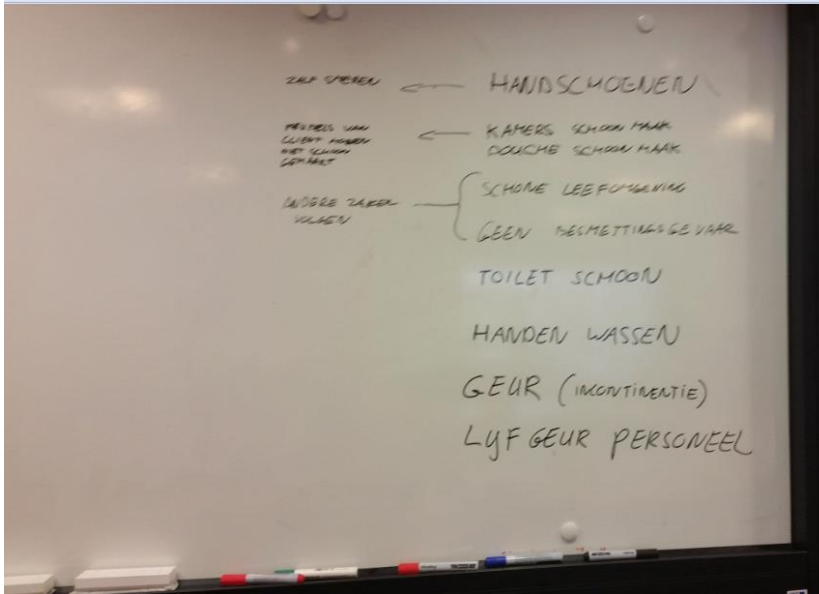 ZALF SMEREN
HANDSCHOENEN
MEUBELS VAN
CLIENT MOGEN
NIET SCHOON
GEMAAKT
KAMERS SCHOON MAAK
DOUCHE SCHOON MAAK
ANDERE ZAKEN
VOLGEN
SCHONE LEEFOMGEVING
GEEN BESMETTINGSGEVAAR
TOILET SCHOON
HANDEN WASSEN
GEUR (INCONTINENTIE)
LYF GEUR PERSONEEL